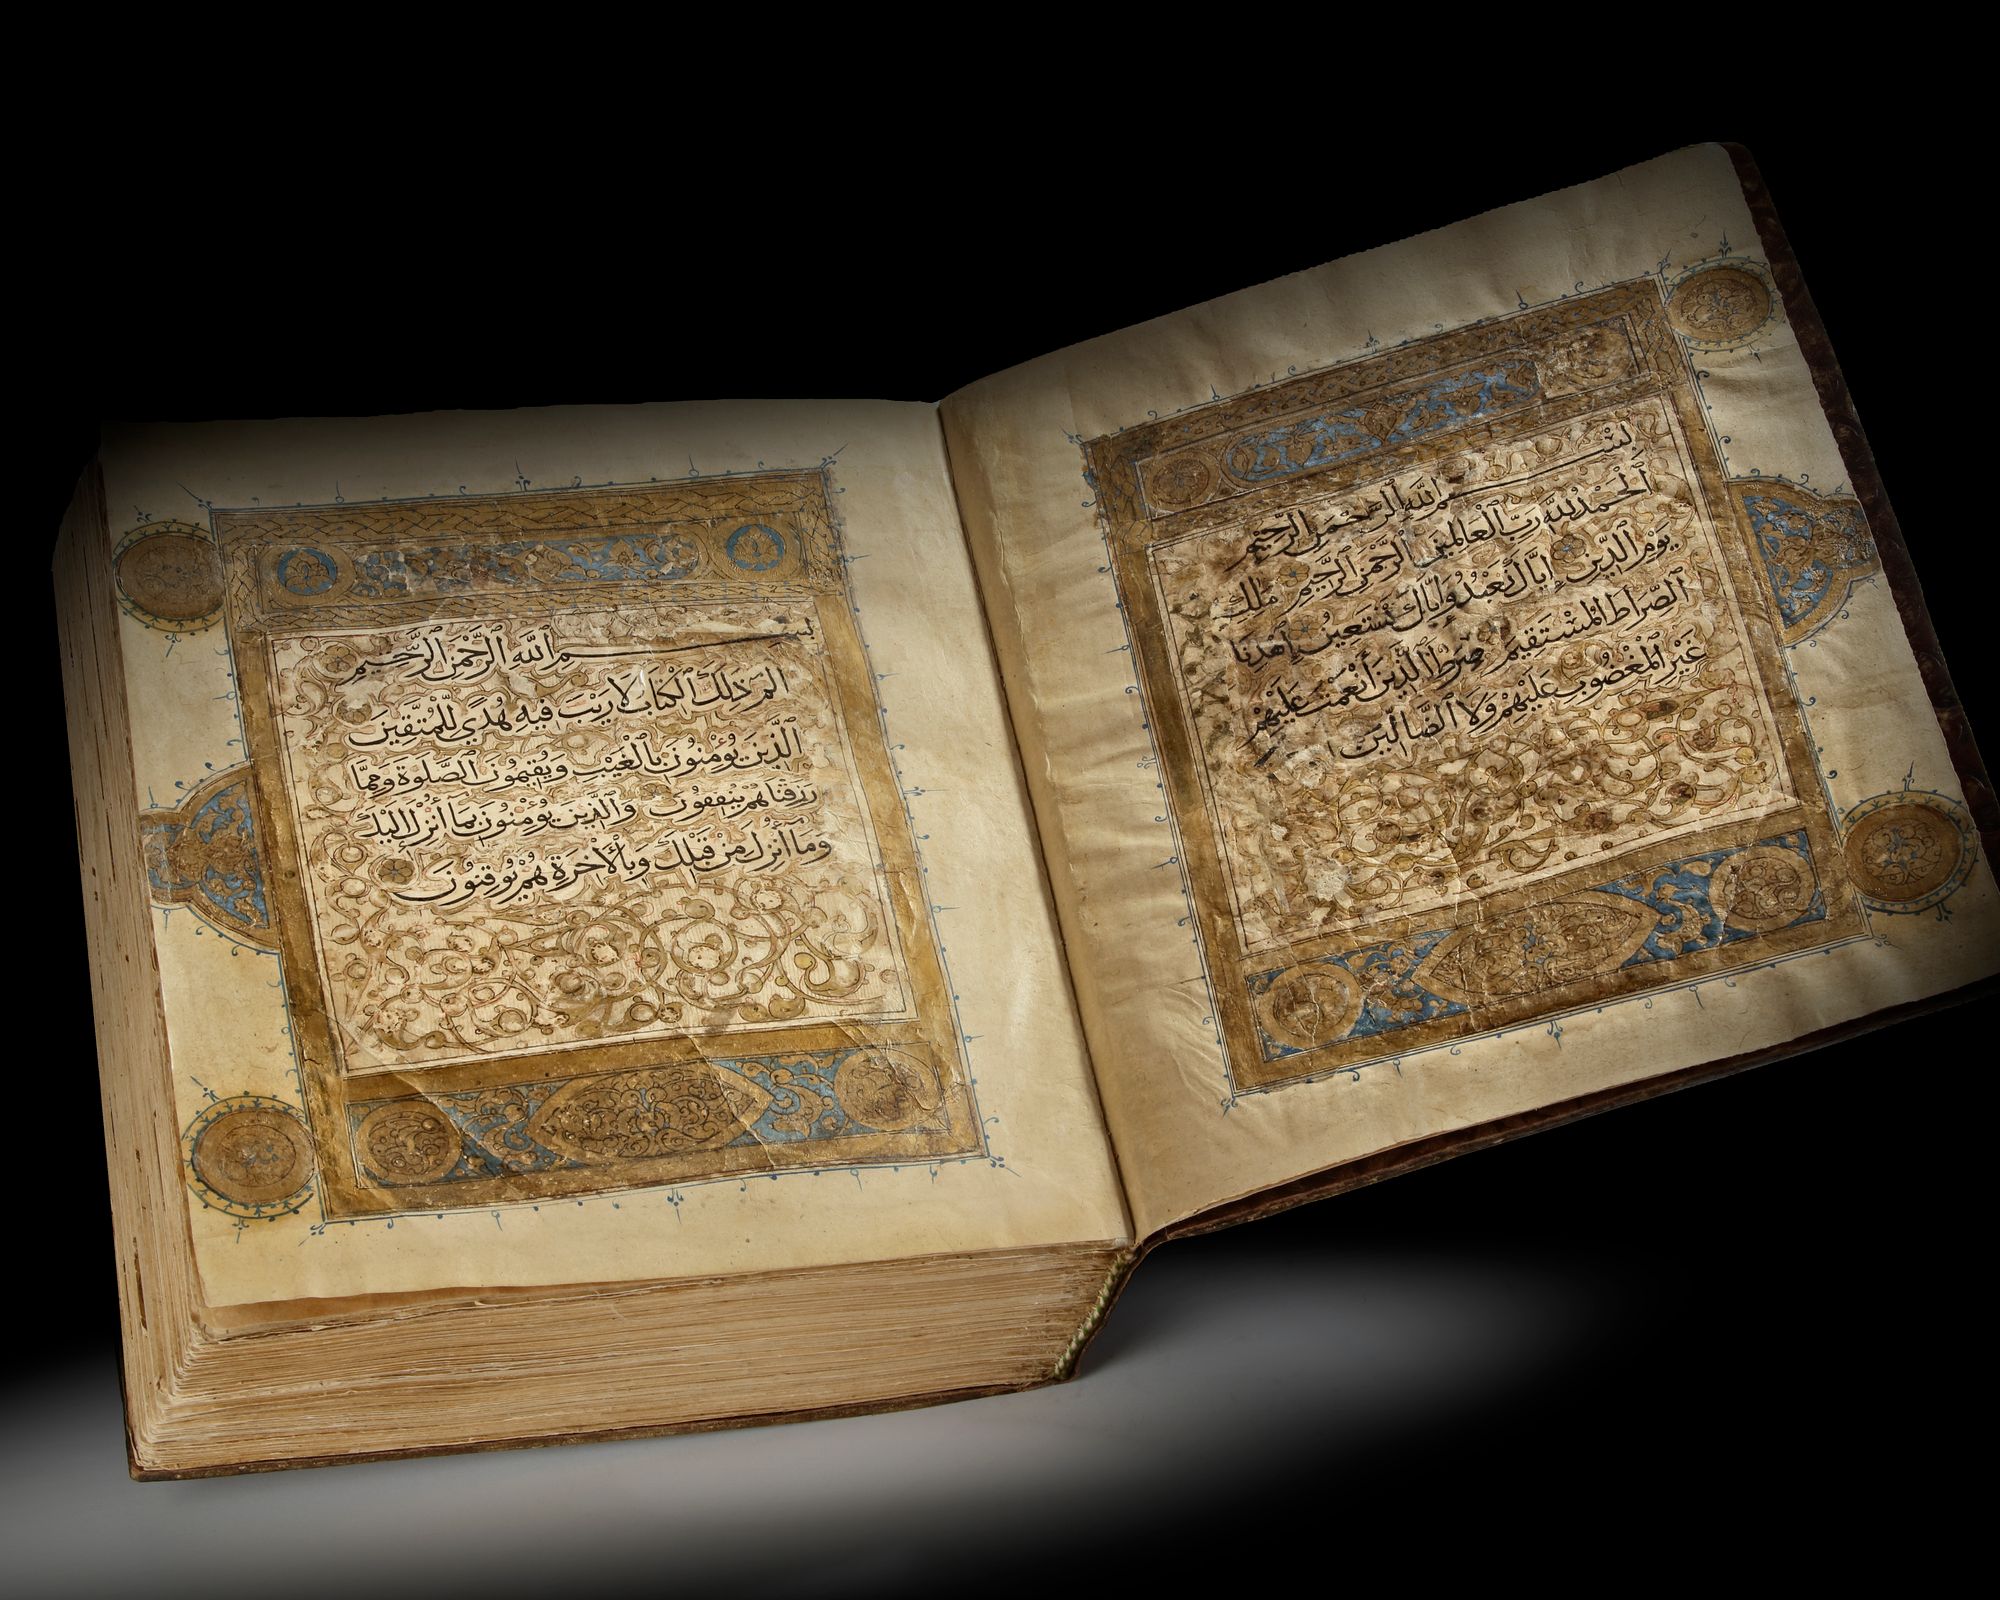 بِسْمِ ٱللَّهِ ٱلرَّحْمَنِ ٱلرَّحِيمِ
ٱلْحَمْدُ لِلَّهِ رَبِّ ٱلْعَالَمِينَ ٱلرَّحْمَنِ ٱلرَّحِيمِ مَلِكِ
يَوْمِ ٱلدِّينِ إِيَّاكَ نَعْبُدُ وَإِيَّاكَ نَسْتَعِينُ اِهْدِنَا
ٱلصِّرَاطَ ٱلْمُسْتَقِيمَ صِرَاطَ ٱلَّذِينَ أَنْعَمْتَ عَلَيْهِمْ
غَيْرِ ٱلْمَغْضُوبِ عَلَيْهِمْ وَلَا ٱلضَّالِّينَ
بِسْمِ ٱللَّهِ ٱلرَّحْمَنِ ٱلرَّحِيمِ
الم ذَلِكَ ٱلْكِتَابُ لَا رَيْبَ فِيهِ هُدًى لِلْمُتَّقِينَ
ٱلَّذِينَ يُؤْمِنُونَ بِٱلْغَيْبِ وَيُقِيمُونَ ٱلصَّلَوةَ وَمِمَّا
رَزَقْنَاهُمْ يُنْفِقُونَ وَٱلَّذِينَ يُؤْمِنُونَ بِمَا أُنْزِلَ إِلَيْكَ
وَمَا أُنْزِلَ مِنْ قَبْلِكَ وَبِٱلْأَخِرَةِ هُمْ يُوقِنُونَ